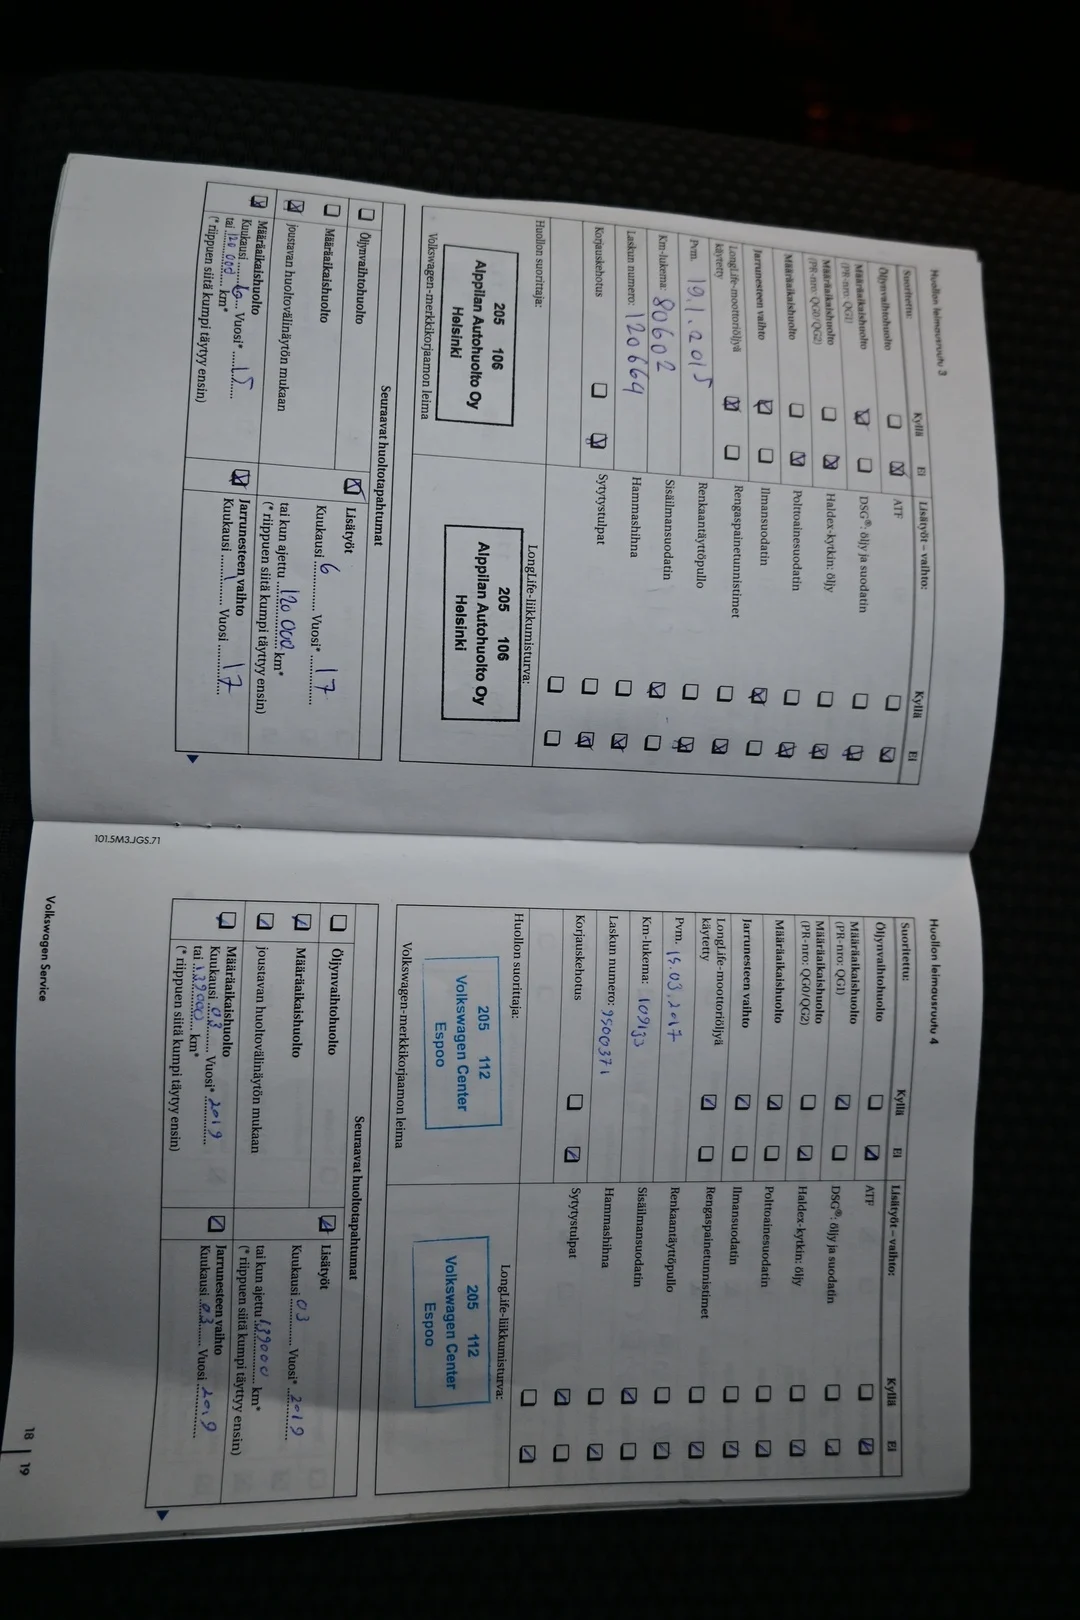 Huollon leimausruutu 3
Suoritettu: Kyllä Ei Lisätyöt – vaihto: Kyllä Ei
Öljynvaihtohuolto ☐ ☒ ATF ☐ ☒
Määräaikaishuolto
(PR-nro: QG1) ☒ ☐ DSG®: öljy ja suodatin ☐ ☒
Määräaikaishuolto
(PR-nro: QG0/QG2) ☐ ☒ Haldex-kytkin: öljy ☐ ☒
Määräaikaishuolto ☐ ☒ Polttoainesuodatin ☐ ☒
Jarrunesteen vaihto ☒ ☐ Ilmansuodatin ☒ ☐
LongLife-moottoriöljyä
käytetty ☒ ☐ Rengaspainetunnistimet ☐ ☒
Pvm. 19.1.2015 Renkaantäyttöpullo ☐ ☒
Km-lukema: 80602 Sisäilmansuodatin ☒ ☐
Laskun numero: 120664 Hammashihna ☐ ☒
Korjauskehotus ☐ ☒ Sytytystulpat ☐ ☒
☐ ☐
Huollon suorittaja: LongLife-liikkumisturva:
205 106
Alppilan Autohuolto Oy
Helsinki
205 106
Alppilan Autohuolto Oy
Helsinki
Volkswagen-merkkikorjaamon leima
Seuraavat huoltotapahtumat
☐ Öljynvaihtohuolto
☐ Määräaikaishuolto
☒ joustavan huoltovälinäytön mukaan
☒ Määräaikaishuolto
Kuukausi Vuosi* 15
tai 120 000 km*
(* riippuen siitä kumpi täytyy ensin)
☒ Lisätyöt
Kuukausi 6 Vuosi* 17
tai kun ajettu 120 000 km*
(* riippuen siitä kumpi täyttyy ensin)
☒ Jarrunesteen vaihto
Kuukausi 1 Vuosi 17
101.5M3.JGS.71
Huollon leimausruutu 4
Suoritettu: Kyllä Ei Lisätyöt – vaihto: Kyllä Ei
Öljynvaihtohuolto ☐ ☒ ATF ☐ ☒
Määräaikaishuolto
(PR-nro: QG1) ☒ ☐ DSG®: öljy ja suodatin ☐ ☒
Määräaikaishuolto
(PR-nro: QG0/QG2) ☐ ☒ Haldex-kytkin: öljy ☐ ☒
Määräaikaishuolto ☒ ☐ Polttoainesuodatin ☐ ☒
Jarrunesteen vaihto ☒ ☐ Ilmansuodatin ☐ ☒
LongLife-moottoriöljyä
käytetty ☒ ☐ Rengaspainetunnistimet ☐ ☒
Pvm. 15.03.2017 Renkaantäyttöpullo ☐ ☒
Km-lukema: 109133 Sisäilmansuodatin ☒ ☐
Laskun numero: 9500371 Hammashihna ☐ ☒
Korjauskehotus ☐ ☒ Sytytystulpat ☒ ☐
☐ ☒
Huollon suorittaja: LongLife-liikkumisturva:
205 112
Volkswagen Center
Espoo
205 112
Volkswagen Center
Espoo
Volkswagen-merkkikorjaamon leima
Seuraavat huoltotapahtumat
☐ Öljynvaihtohuolto
☒ Määräaikaishuolto
☒ joustavan huoltovälinäytön mukaan
☒ Määräaikaishuolto
Kuukausi 03 Vuosi* 2019
tai 139000 km*
(* riippuen siitä kumpi täytyy ensin)
☒ Lisätyöt
Kuukausi 03 Vuosi* 2019
tai kun ajettu 139000 km*
(* riippuen siitä kumpi täyttyy ensin)
☒ Jarrunesteen vaihto
Kuukausi 03 Vuosi 2019
Volkswagen Service
18 | 19